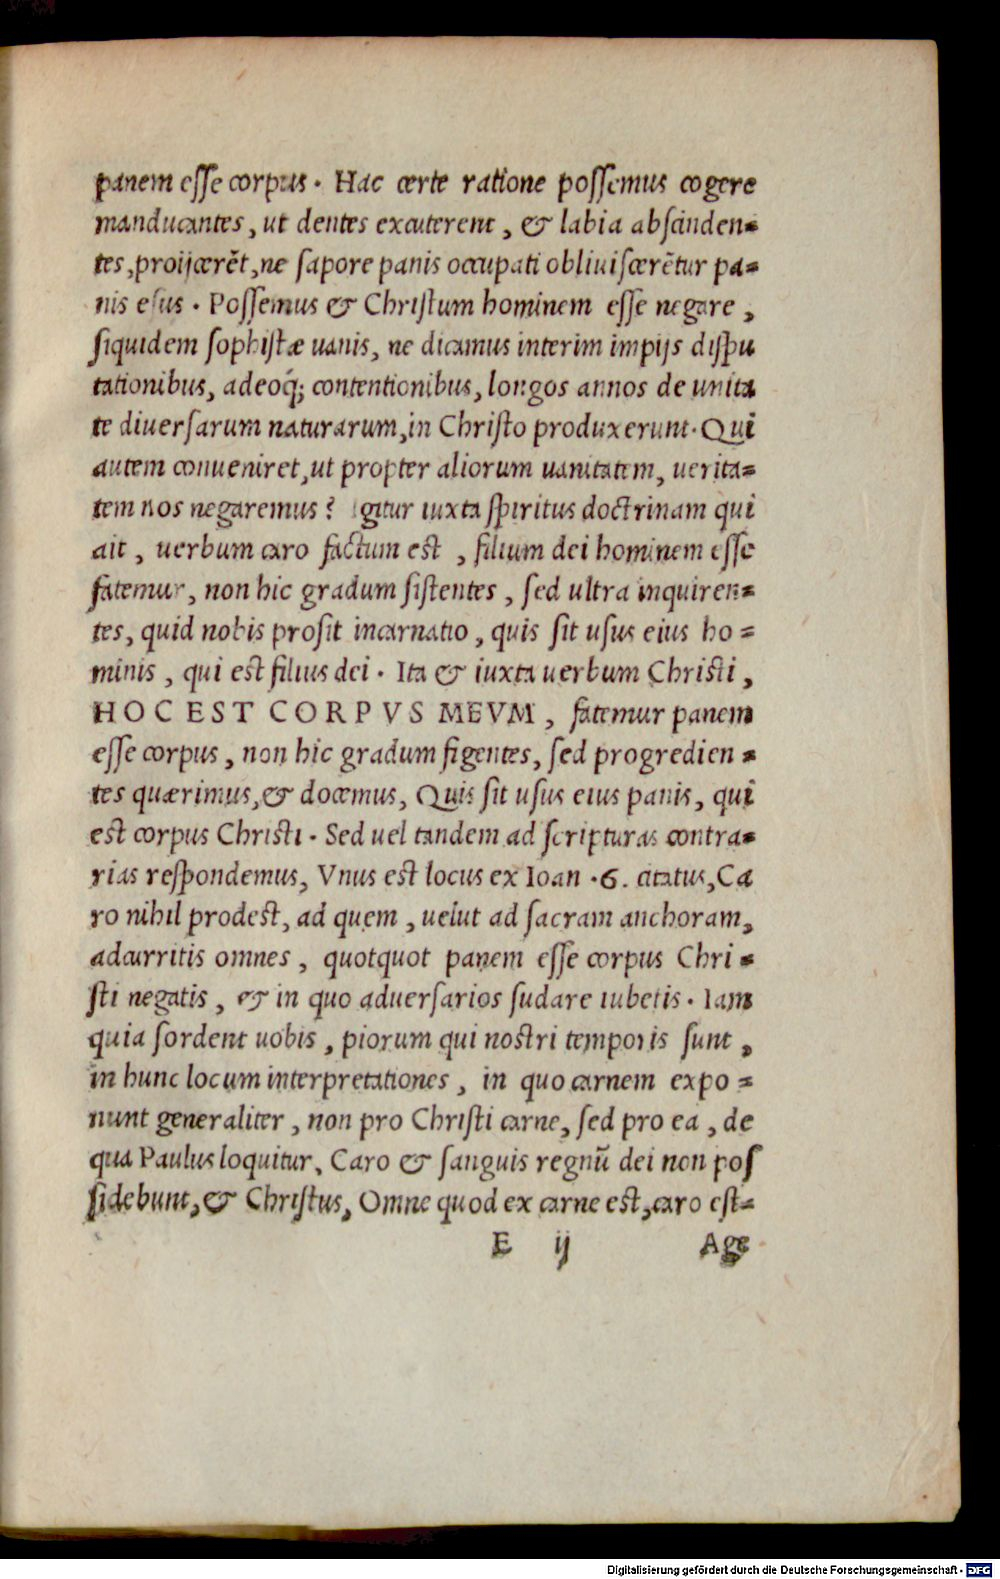 panem esse corpus. Hac certe ratione possemus cogere
manducantes, ut dentes excuterent, & labia abscinden=
tes, proijcerẽt, ne sapore panis occupati obliuiscerẽtur pa=
nis esus. Possemus & Christum hominem esse negare,
siquidem sophistæ uanis, ne dicamus interim impijs dispu
tationibus, adeoq́; contentionibus, longos annos de unita
te diuersarum naturarum, in Christo produxerunt. Qui
autem conueniret, ut propter aliorum uanitatem, uerita=
tem nos negaremus? Igitur iuxta spiritus doctrinam qui
ait, uerbum caro factum est, filium dei hominem esse
fatemur, non hic gradum sistentes, sed ultra inquiren=
tes, quid nobis prosit incarnatio, quis sit usus eius ho=
minis, qui est filius dei. Ita & iuxta uerbum Christi,
HOC EST CORPVS MEVM, fatemur panem
esse corpus, non hic gradum figentes, sed progredien=
tes quærimus, & docemus, Quis sit usus eius panis, qui
est corpus Christi. Sed uel tandem ad scripturas contra=
rias respondemus, Vnus est locus ex Ioan .6. citatus, Ca
ro nihil prodest, ad quem, uelut ad sacram anchoram,
adcurritis omnes, quotquot panem esse corpus Chri=
sti negatis, & in quo aduersarios sudare iubetis. Iam
quia sordent uobis, piorum qui nostri temporis sunt,
in hunc locum interpretationes, in quo carnem expo=
nunt generaliter, non pro Christi carne, sed pro ea, de
qua Paulus loquitur, Caro & sanguis regnũ dei non pos
sidebunt, & Christus, Omne quod ex carne est, caro est.
E ij Age
Digitalisierung gefördert durch die Deutsche Forschungsgemeinschaft - DFG